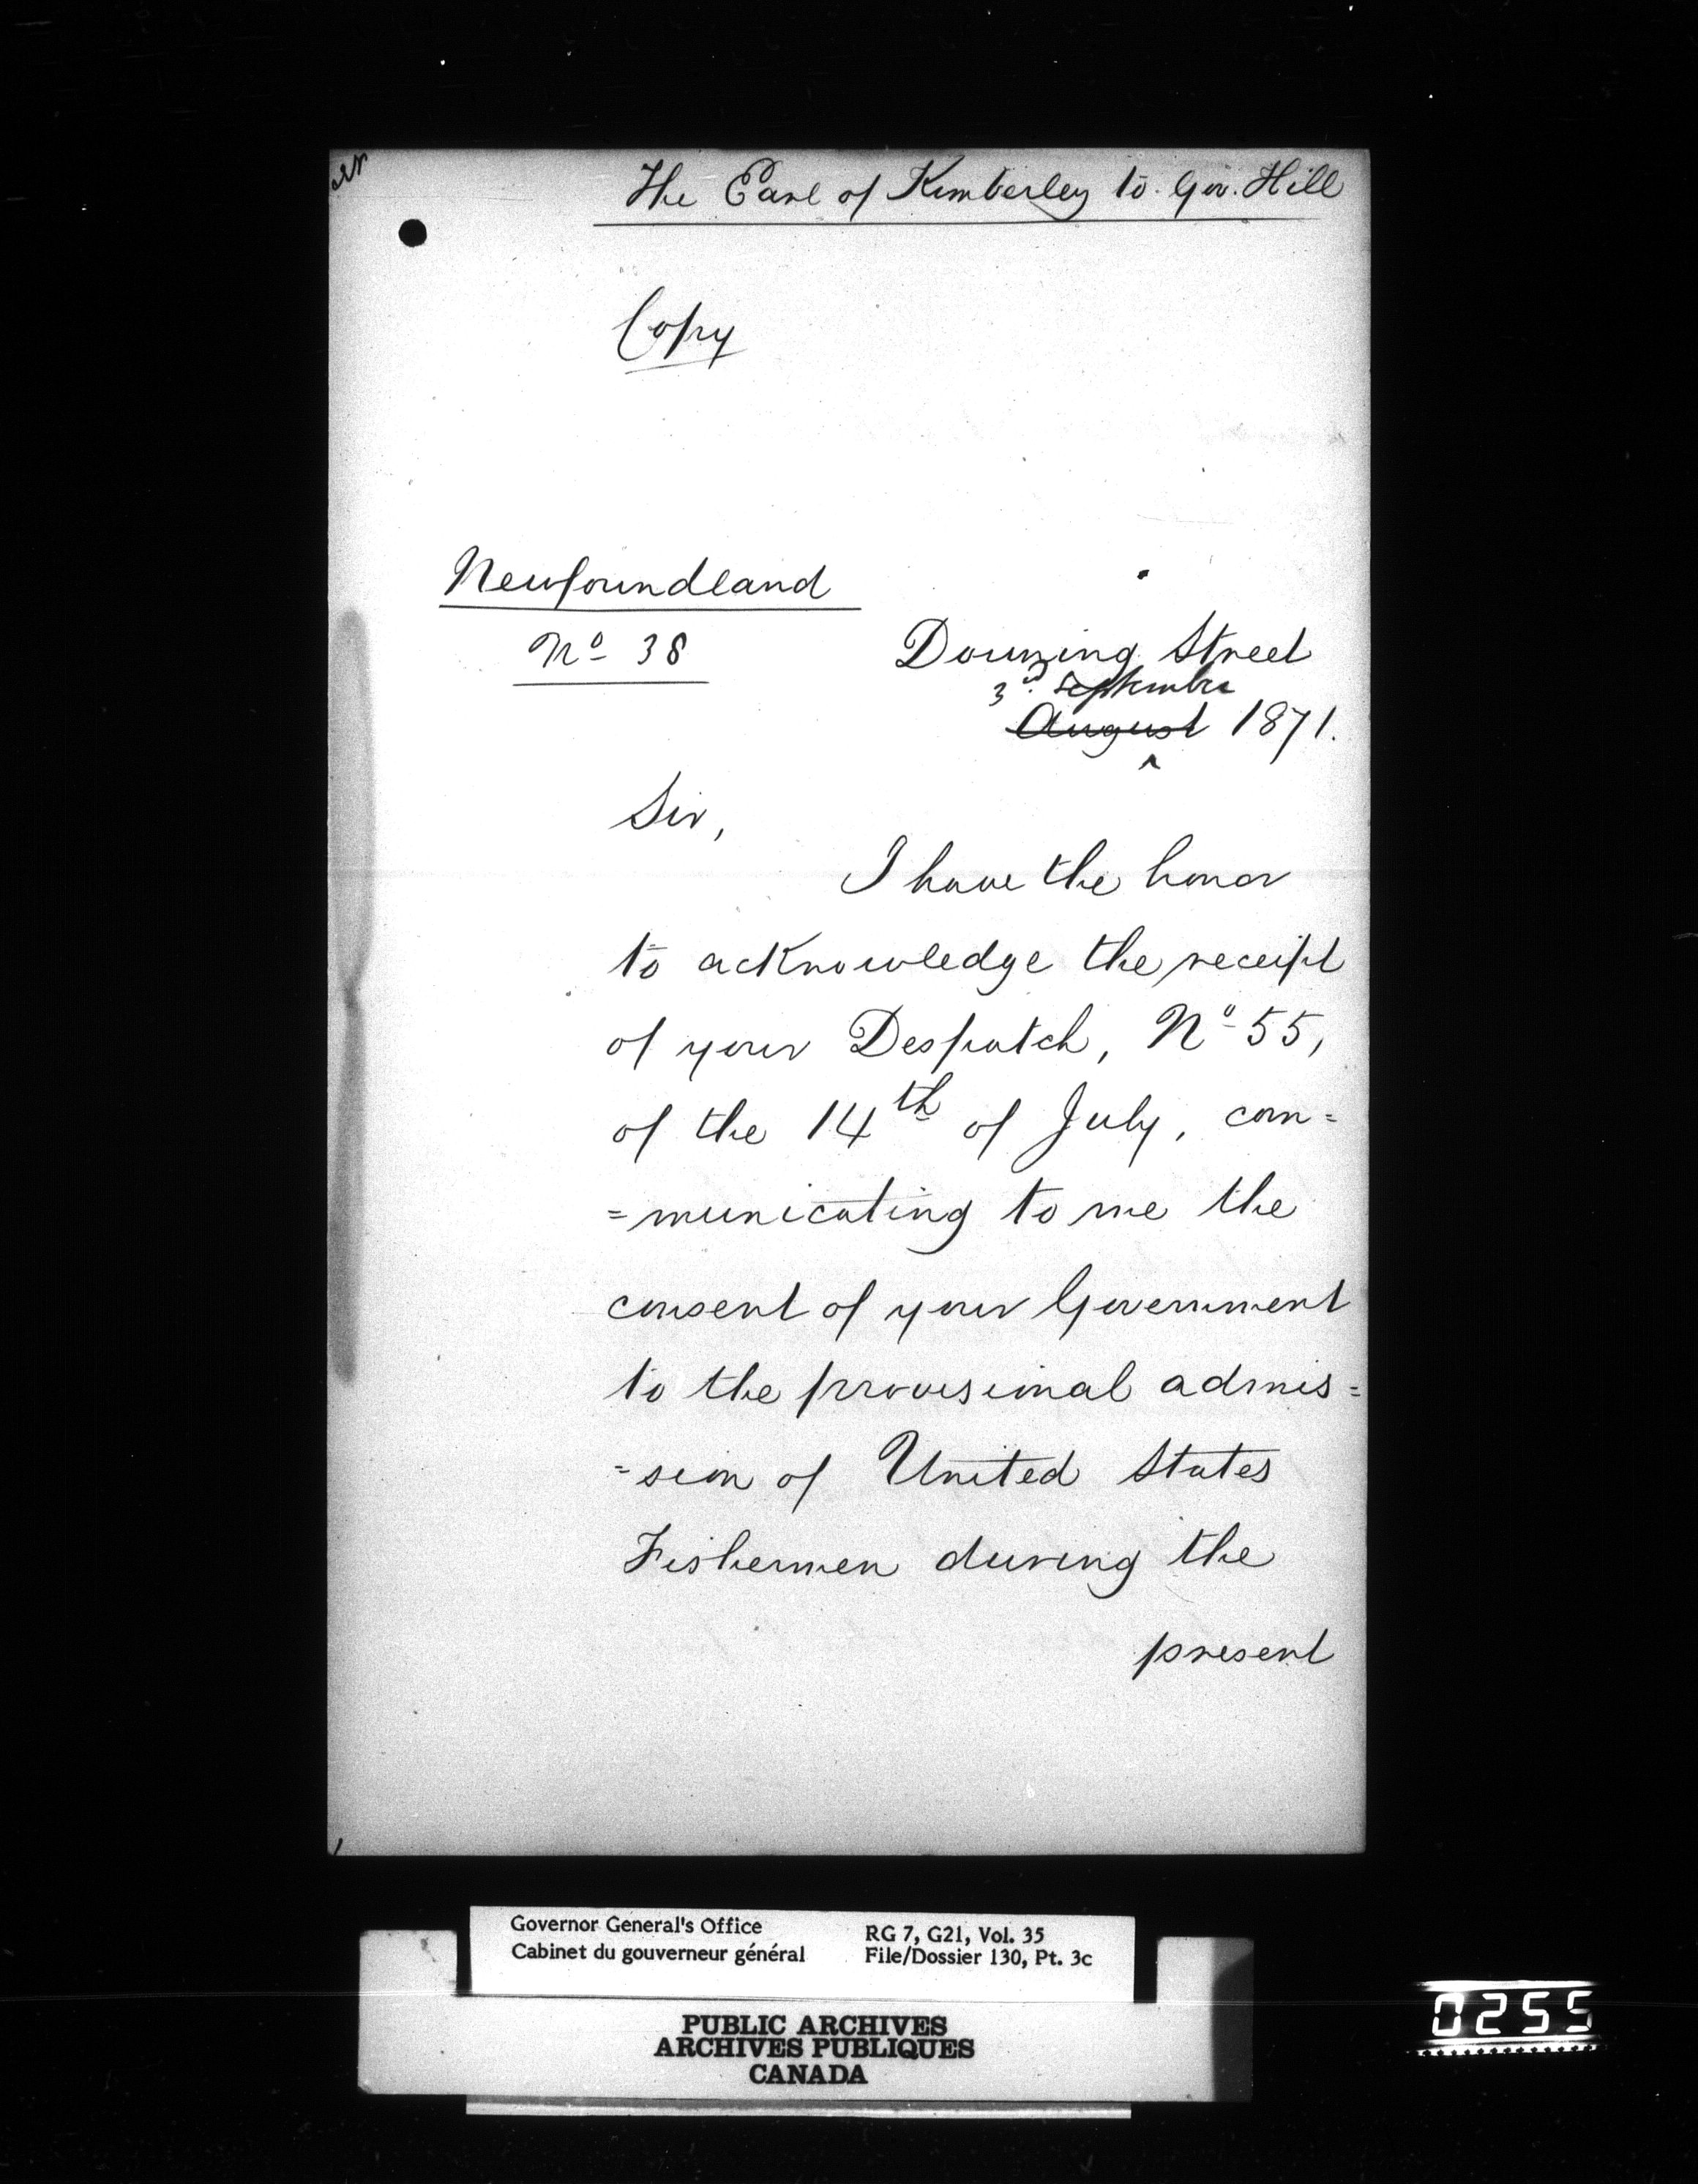 The Earl of Kimberley to Gov. Hill
Copy
Newfoundland
No 38
Downing Street
3d. September
August 1871.
Sir,
I have the honor
to acknowledge the receipt
of your Despatch, No 55,
of the 14th of July, com=
=municating to me the
consent of your Government
to the provisional admis=
=sion of United States
Fishermen during the
present
Governor General's Office
Cabinet du gouverneur général
RG 7, G21, Vol. 35
File/Dossier 130, Pt. 3c
PUBLIC ARCHIVES
ARCHIVES PUBLIQUES
CANADA
0255